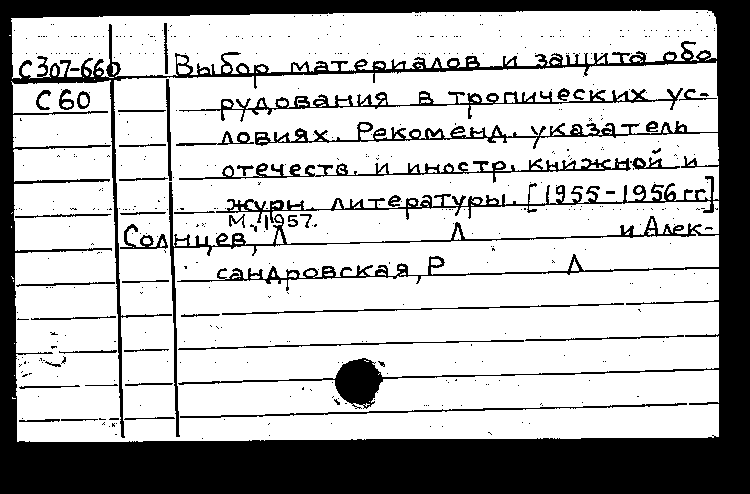 С307-660 Выбор материалов и защита обо
С60 рудования в тропических ус-
ловиях. Рекоменд. указатель
отечеств. и иностр. книжной и
журн. литературы. [1955-1956 гг]
М., 1957.
Солнцев, Л Л и Алек-
сандровская, Р Л